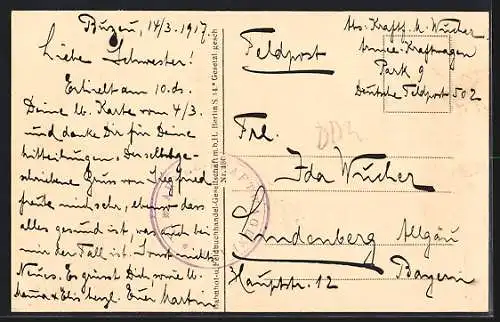 Buzeu, 14/3.1917.
Liebe Schwester!
Erhielt am 10. ds.
Deine lb. Karte vom 4/3.
und danke Dir für Deine
Mitteilungen. Der selbstge-
schriebene Gruss von Siegfried
freute mich sehr, ebenso dass
alles gesund ist, was auch bei
mir der Fall ist. Sonst nichts
Neues. Es grüsst Dich sowie lb.
Mama & Elis herzl. Euer Martin
Bahnhof- u. Feldbuchhandel-Gesellschaft m.b.H. Berlin S 14 * Gesetzl. gesch.
Feldpost
Abs. Kraftf. M. Wucher
Armee-Kraftwagen
Park 9
Deutsche Feldpost 502
Frl.
Ida Wucher
Lindenberg Allgäu
Hauptstr. 12 Bayern